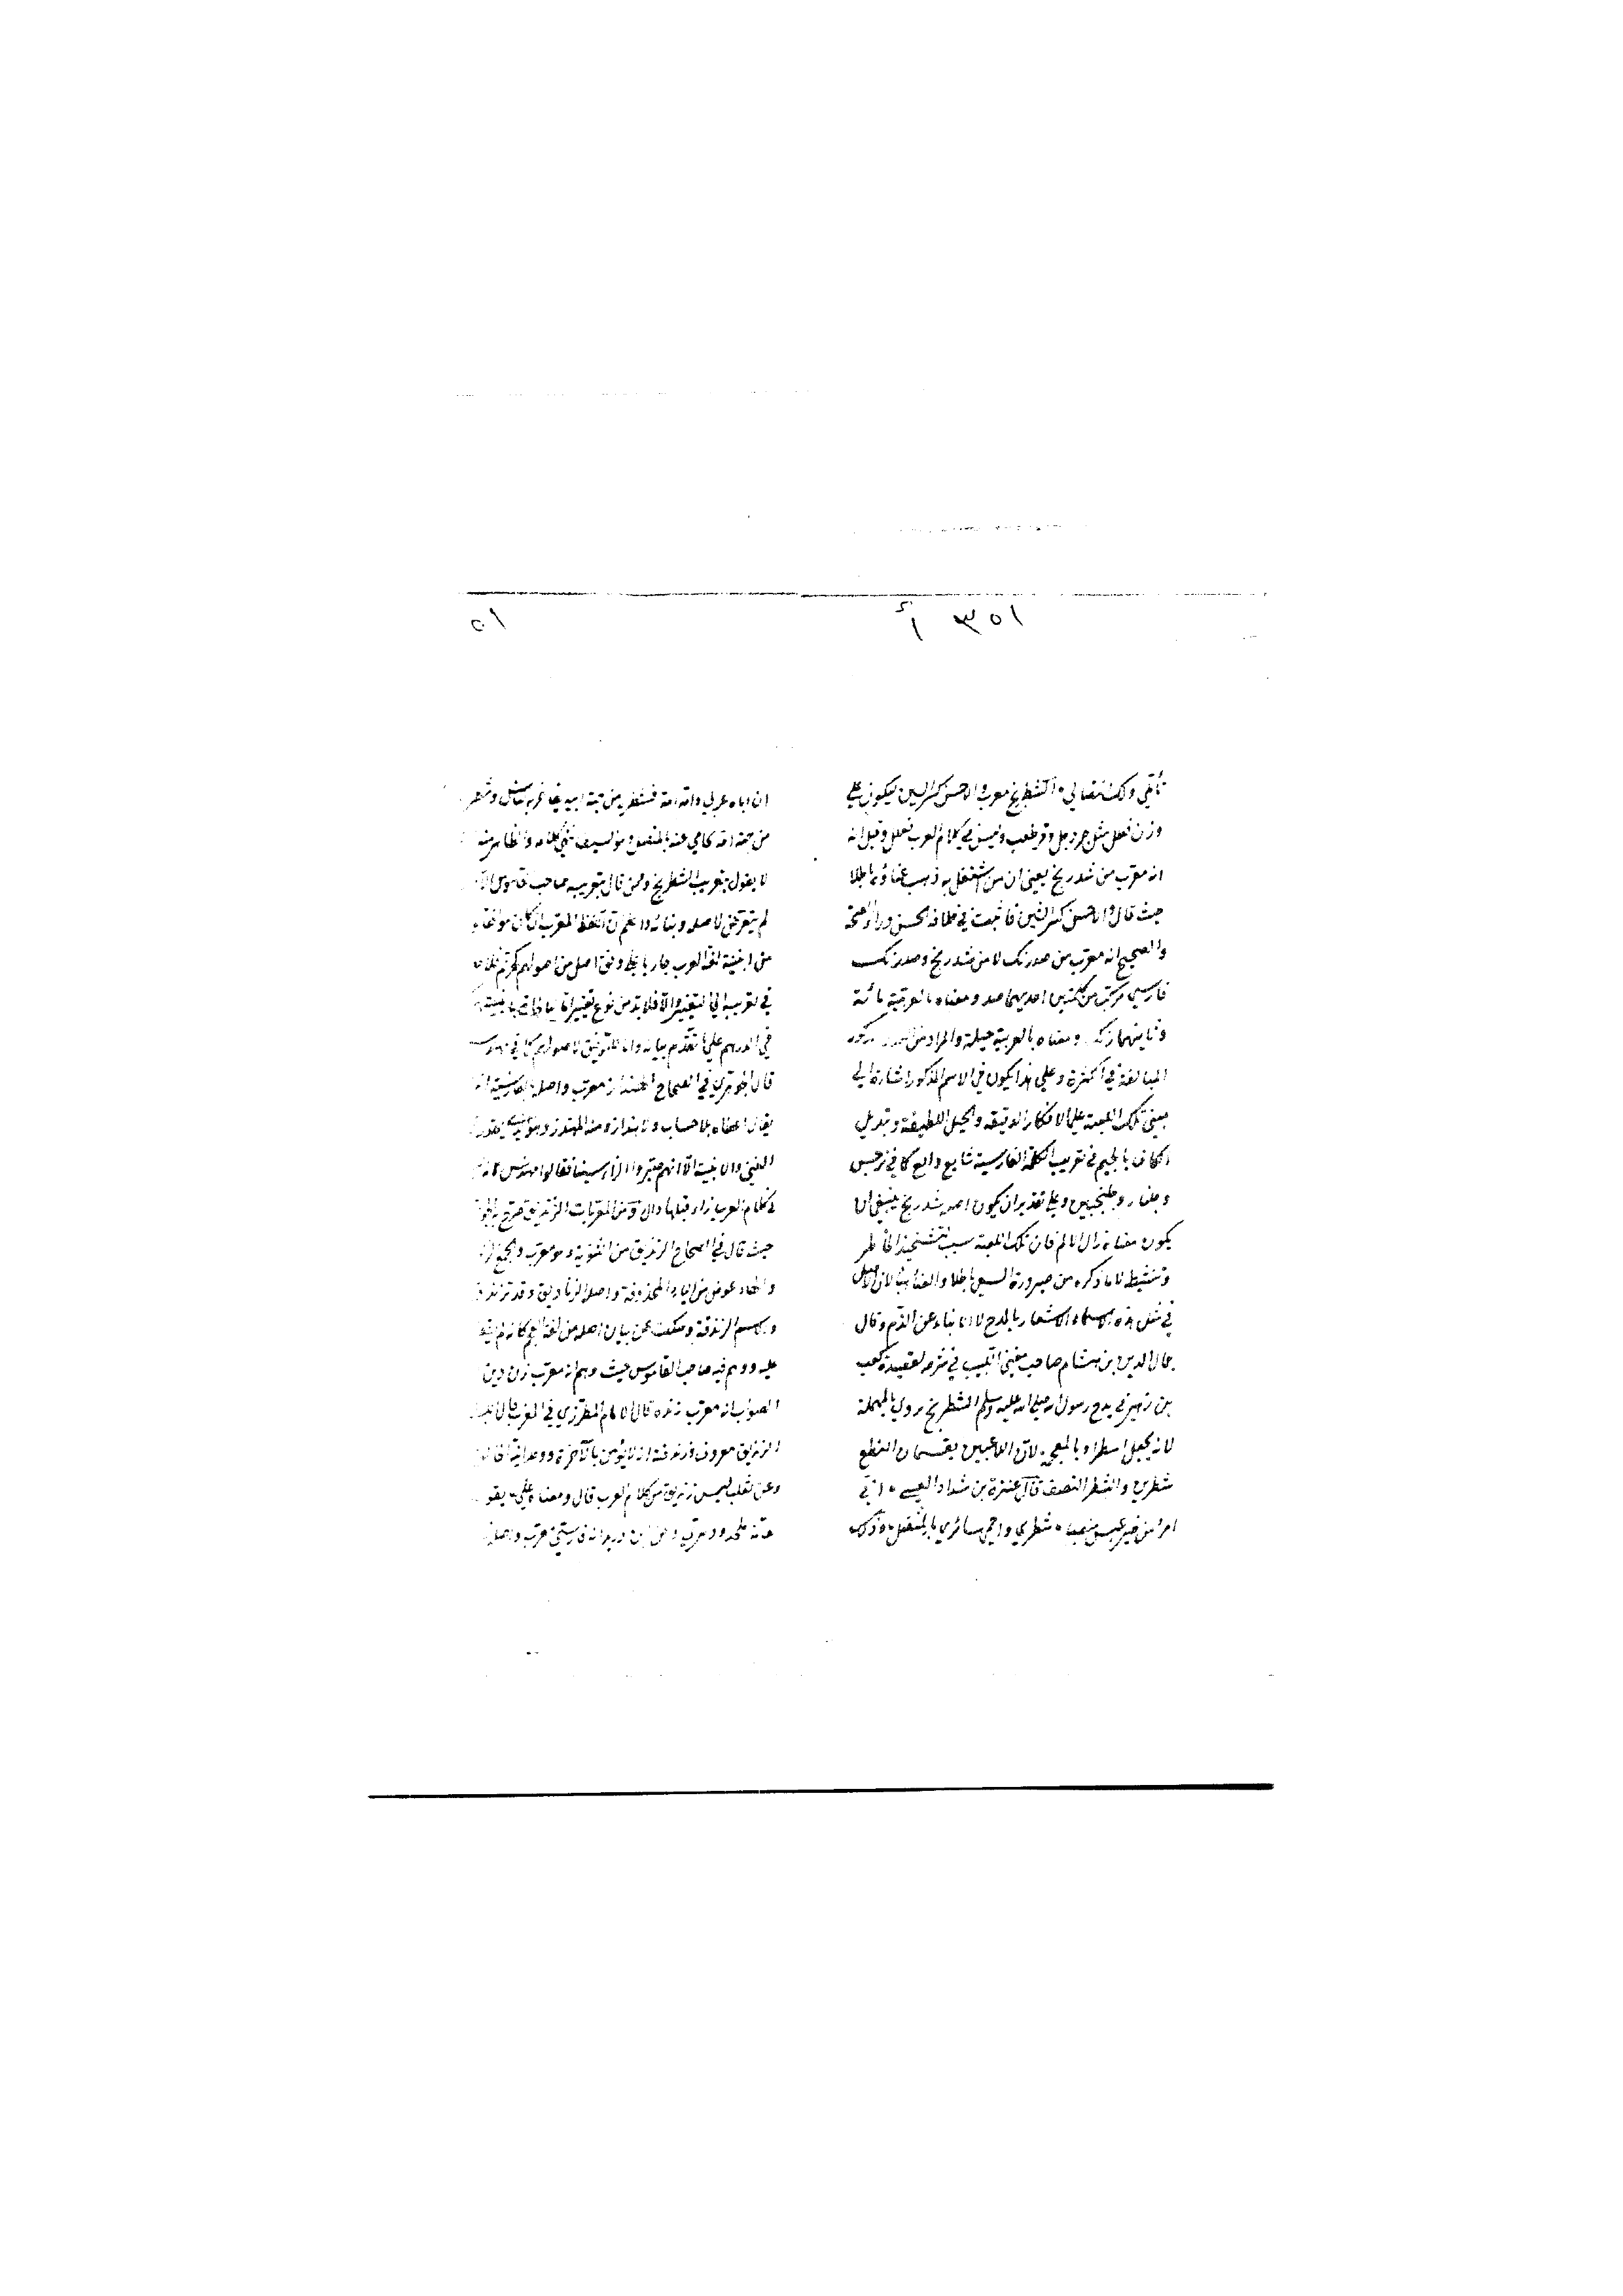 ٣٥١ أ
تأتي وذلك مقالي الشطرنج معرب والاحسن كسر السين ليكون على
وزن فعلل مثل جردحل وقرطعب وليس في كلام العرب فعلل وقيل انه
انه معرب من شدرنج يعني ان من اشتغل به ذهب عناؤه باطلا
حيث قال والاحسن كسر الشين
والصحيح انه معرب من صدرنك لا من شدرنج وصدرنك
فارسي مركب من كلمتين احديهما صد ومعناه بالعربية مائة
وثانيتهما رنك ومعناه بالعربية حيلة والمراد من
المبالغة في الكثرة وعلى هذا يكون في الاسم المذكور اشارة الى
مبنى تلك اللعبة على الافكار الدقيقة والحيل اللطيفة وتبديل
الكاف بالجيم في تعريب الكلمة الفارسية شايع ذايع كما في نرجس
وجلنار وجلنجبين وعلى تقدير ان يكون اصله شدرنج ينبغي ان
يكون معناه زال الالم فان تلك اللعبة سبب لتشحيذ الخاطر
وتنشيطه لا ما ذكره من صيرورة السعي باطلا والعنا لان الاصل
في مثل هذه الاسماء الاشعار بالمدح لا الانباء عن الذم وقال
جمال الدين بن هشام صاحب مغني اللبيب في شرحه لقصيدة كعب
بن زهير في مدح رسول الله صلى الله عليه وسلم الشطرنج روي بالمهملة
لانه يجعل اسطرا وبالمعجمة لان اللاعبين يقتسمان القطع
شطرين والشطر النصف قال عنترة بن شداد العبسي اني
امرؤ من خير عبس منصبا شطري واحمي سائري بالمنصل وذلك
ان اباه عربي وامه امة فشطره من جهة ابيه
من جهة امه
لا يقول بتعريب الشطرنج وممن قال بتعريبه صاحب القاموس
لم يتعرض لاصله وبنائه واعلم ان اللفظ المعرب ان كان موافقا
من ابنية لغة العرب جاريا على وفق اصل من اصولهم
في تعريبه الى التغيير والا فلابد من نوع تغيير
في الدرهم على ما تقدم بيانه
قال الجوهري في الصحاح الهنداز معرب واصله بالفارسية
يقال اعطاه بلا حساب ولا هنداز ومنه المهندز وهو الذي يقدر
القني والابنية الا انهم صيروا الزاء سينا فقالوا مهندس لانه
في كلام العرب زاء قبلها دال ومن المعربات الزنديق صرح به
حيث قال في الصحاح الزنديق من الثنوية وهو معرب والجمع
والهاء عوض من الياء المحذوفة واصله الزناديق وقد تزندق
والاسم الزندقة وسكت عن بيان اصله من لغة العجم كانه لم يقف
عليه ووهم فيه صاحب القاموس حيث وهم انه معرب زن دين
الصواب انه معرب زنده قال الامام المطرزي في المغرب قال
الزنديق معروف وزندقته انه لا يؤمن بالآخرة ووحدانية الخالق
وعن ثعلب ليس زنديق من كلام العرب قال ومعناه على ما يقو
ملحد ودهري وعن ابن دريد انه فارسي معرب واصله